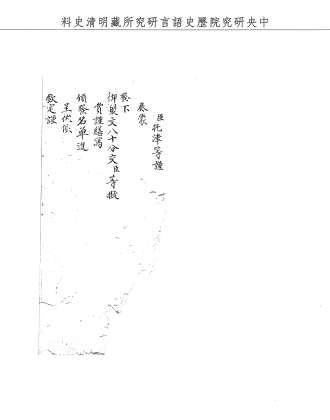 中央研究院歷史語言研究所藏明清史料
臣托津等謹
奏蒙
發下
御製文八十分交臣等擬
賞謹繕寫
頒發名單進
呈伏候
欽定謹